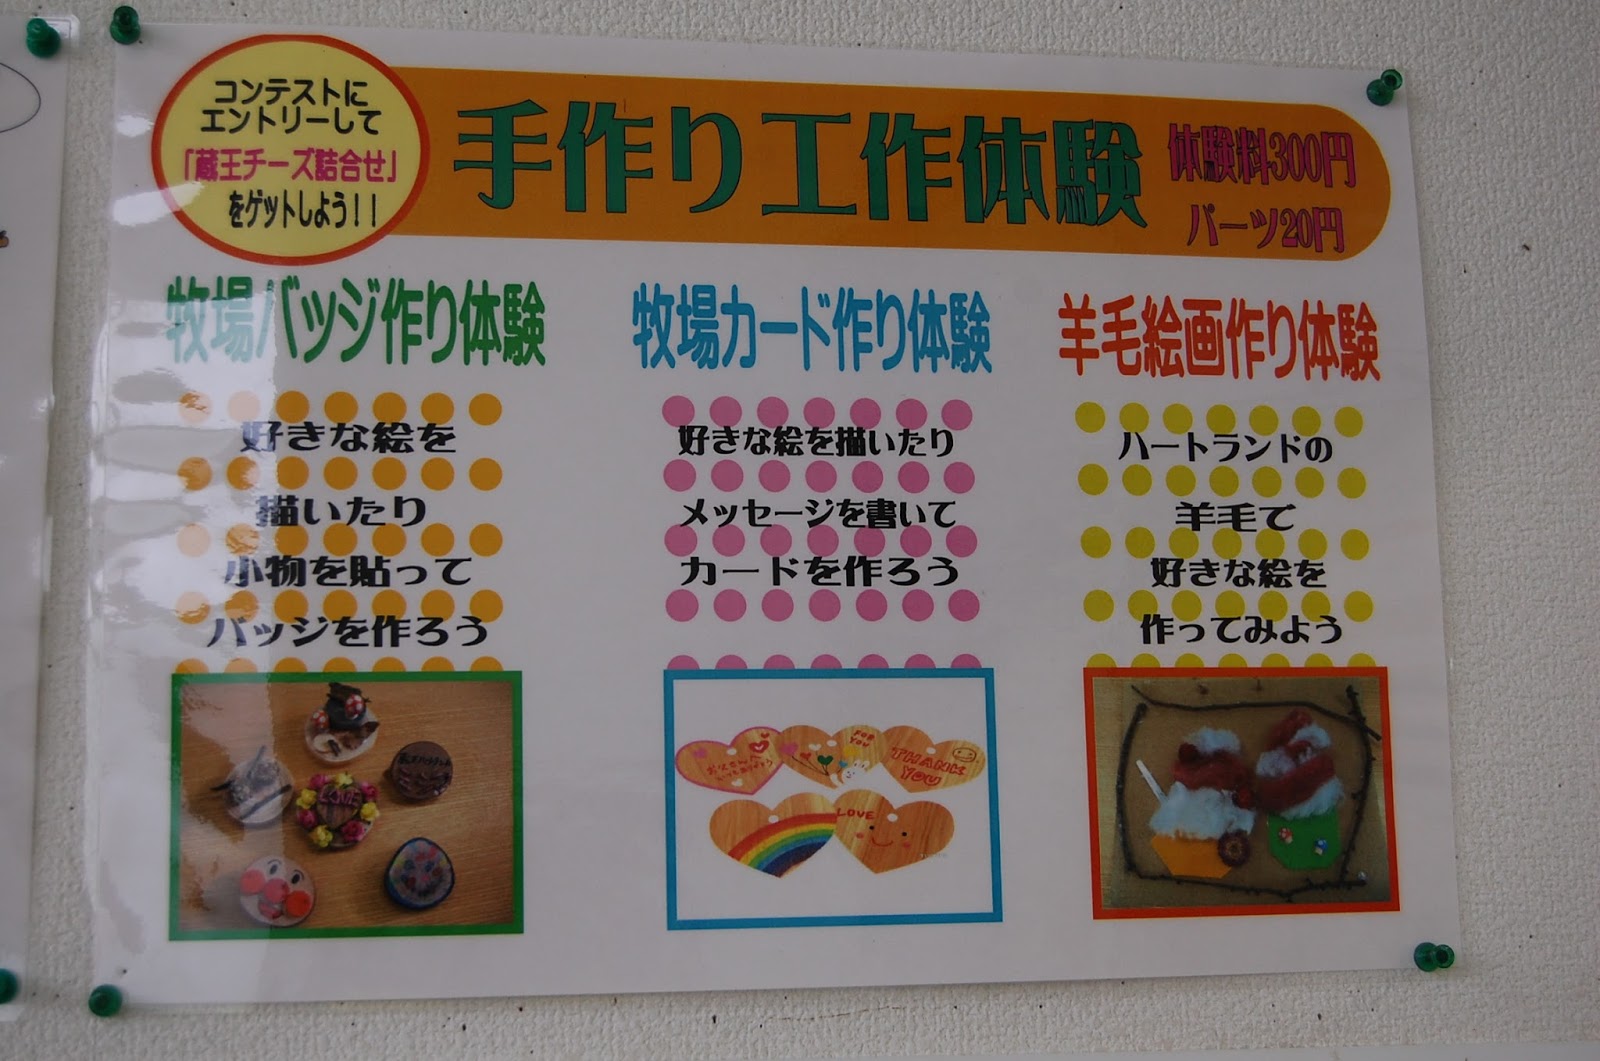 コンテストに
エントリーして
「蔵王チーズ詰合せ」
をゲットしよう！！
手作り工作体験
体験料300円
パーツ20円
牧場バッジ作り体験
好きな絵を
描いたり
小物を貼って
バッジを作ろう
牧場カード作り体験
好きな絵を描いたり
メッセージを書いて
カードを作ろう
羊毛絵画作り体験
ハートランドの
羊毛で
好きな絵を
作ってみよう
LOVE
お父さんへ
いつもありがとう
FOR
YOU
THANK
YOU
LOVE